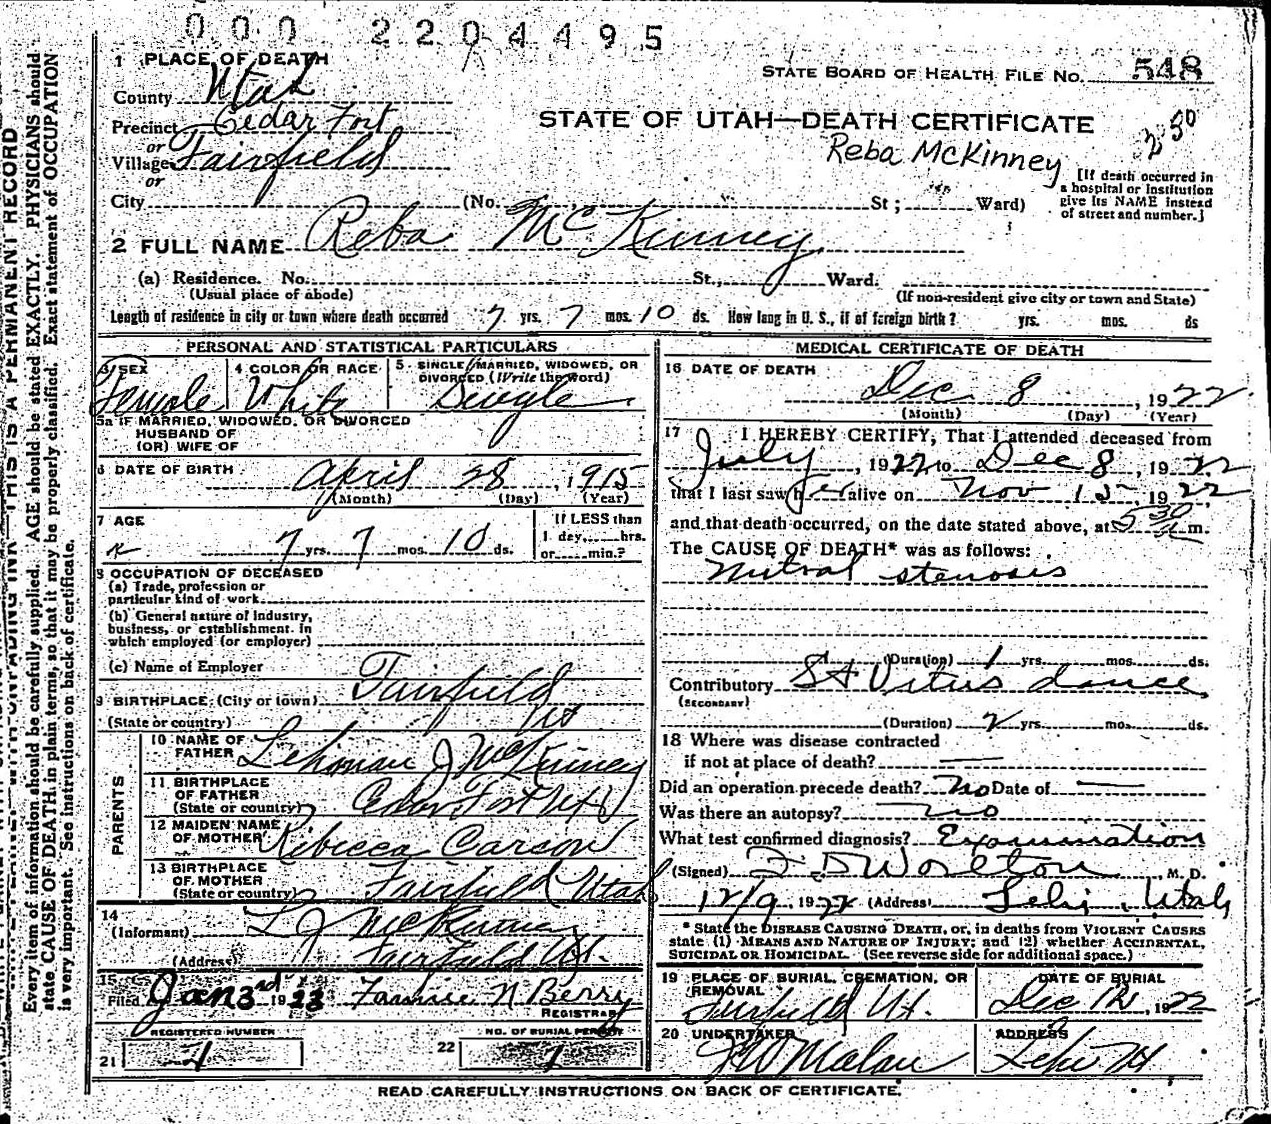 000 2204495
1 PLACE OF DEATH
STATE BOARD OF HEALTH FILE NO. 548
County Utah
Precinct Cedar Fort
or
Village Fairfield
or
STATE OF UTAH—DEATH CERTIFICATE
Reba McKinney
250
[If death occurred in
a hospital or institution
give its NAME instead
of street and number.]
City (No. St; Ward)
2 FULL NAME Reba McKinney
(a) Residence. No. St., Ward.
(Usual place of abode)
(If non-resident give city or town and State)
Length of residence in city or town where death occurred 7 yrs. 7 mos. 10 ds. How long in U. S., if of foreign birth? yrs. mos. ds
PERSONAL AND STATISTICAL PARTICULARS
3 SEX
Female
4 COLOR OR RACE
White
5 SINGLE, MARRIED, WIDOWED, OR
DIVORCED (Write the word)
Single
5a IF MARRIED, WIDOWED, OR DIVORCED
HUSBAND OF
(OR) WIFE OF
6 DATE OF BIRTH April 28, 1915
(Month) (Day) (Year)
7 AGE
7 yrs. 7 mos. 10 ds.
If LESS than
1 day, hrs.
or min.?
8 OCCUPATION OF DECEASED
(a) Trade, profession or
particular kind of work
(b) General nature of industry,
business, or establishment in
which employed (or employer)
(c) Name of Employer
9 BIRTHPLACE (City or town) Fairfield
(State or country) Ut
PARENTS
10 NAME OF
FATHER Lehonan J McKinney
11 BIRTHPLACE
OF FATHER
(State or country) Cedar Fort Ut
12 MAIDEN NAME
OF MOTHER Ribecca Carson
13 BIRTHPLACE
OF MOTHER
(State or country) Fairfield Utah
14
(Informant) L J McKinney
(Address) Fairfield Ut.
15
Filed Jan 3rd 1923 N Berry
REGISTRAR
REGISTERED NUMBER
21 1
NO. OF BURIAL PERMIT
22 1
MEDICAL CERTIFICATE OF DEATH
16 DATE OF DEATH
Dec 8, 1922
(Month) (Day) (Year)
17 I HEREBY CERTIFY, That I attended deceased from
July, 1922 to Dec 8, 1922
that I last saw her alive on Nov 15, 1922
and that death occurred, on the date stated above, at 530 m.
The CAUSE OF DEATH* was as follows:
Mitral stenosis
(Duration) 1 yrs. mos. ds.
Contributory St Vitus dance
(SECONDARY)
(Duration) 2 yrs. mos. ds.
18 Where was disease contracted
if not at place of death? —
Did an operation precede death? No Date of —
Was there an autopsy? no
What test confirmed diagnosis? Examination
(Signed) F D Worlton, M. D.
12/9, 1922 (Address) Lehi, Utah
* State the DISEASE CAUSING DEATH, or, in deaths from VIOLENT CAUSES
state (1) MEANS AND NATURE OF INJURY; and (2) whether ACCIDENTAL,
SUICIDAL OR HOMICIDAL. (See reverse side for additional space.)
19 PLACE OF BURIAL, CREMATION, OR
REMOVAL
Fairfield Ut.
DATE OF BURIAL
Dec 12, 1922
20 UNDERTAKER
Malan
ADDRESS
Lehi Ut
READ CAREFULLY INSTRUCTIONS ON BACK OF CERTIFICATE.
THIS IS A PERMANENT RECORD
Every item of information should be carefully supplied. AGE should be stated EXACTLY. PHYSICIANS should
state CAUSE OF DEATH in plain terms, so that it may be properly classified. Exact statement of OCCUPATION
is very important. See instructions on back of certificate.